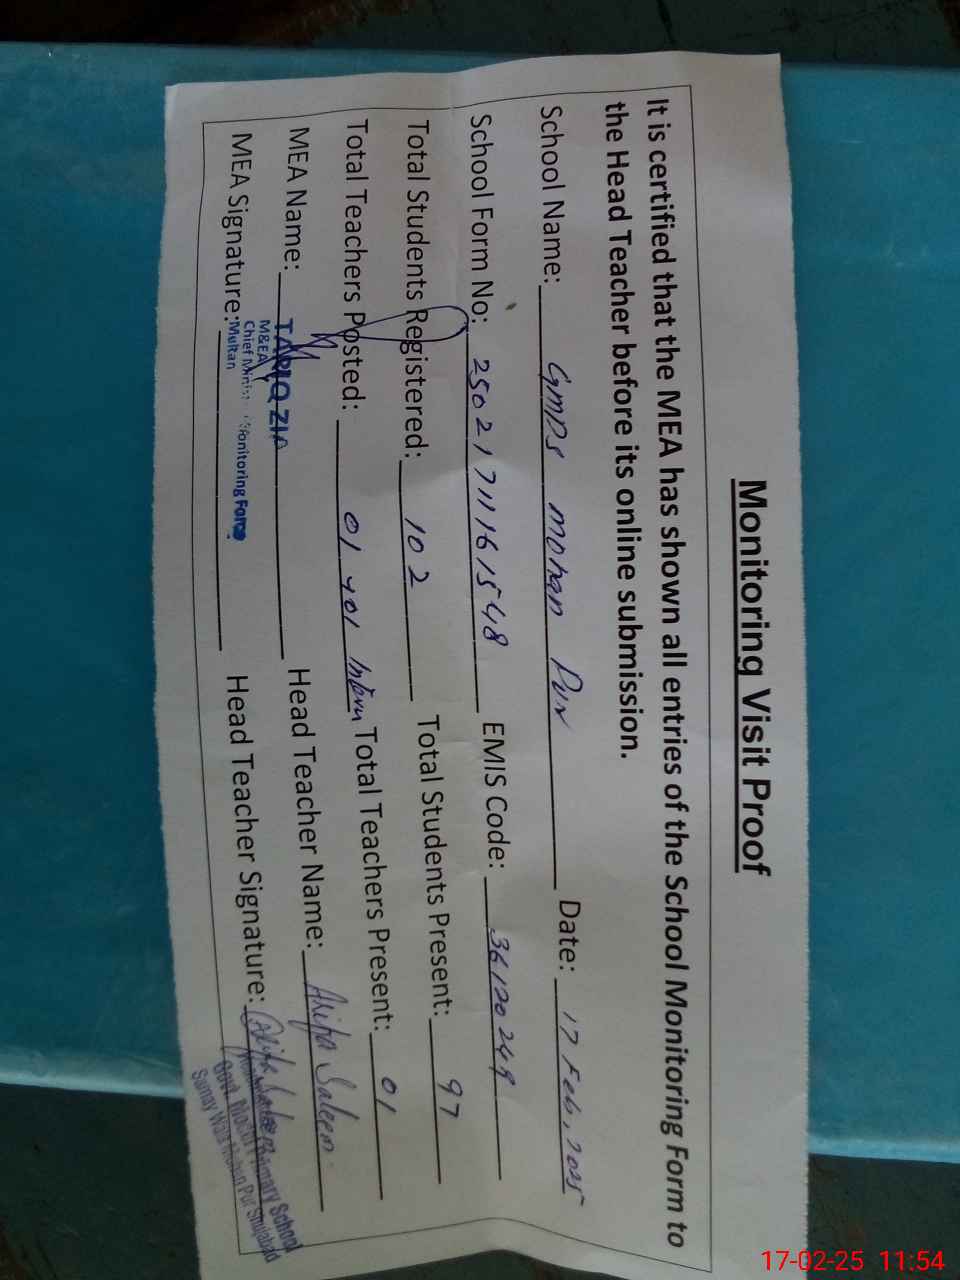 Monitoring Visit Proof
It is certified that the MEA has shown all entries of the School Monitoring Form to
the Head Teacher before its online submission.
School Name: GMPS Mohan Pur Date: 17 Feb, 2025
School Form No: 25021711161548 EMIS Code: 36120249
Total Students Registered: 102 Total Students Present: 97
Total Teachers Posted: 01 + 01 Intern Total Teachers Present: 01
MEA Name: TARIQ ZIA Head Teacher Name: Alifa Saleem
MEA Signature: Head Teacher Signature:
M&EA
Chief Monitoring Force
Multan
Govt. Model Primary School
Mohan Pur Shujabad
17-02-25 11:54